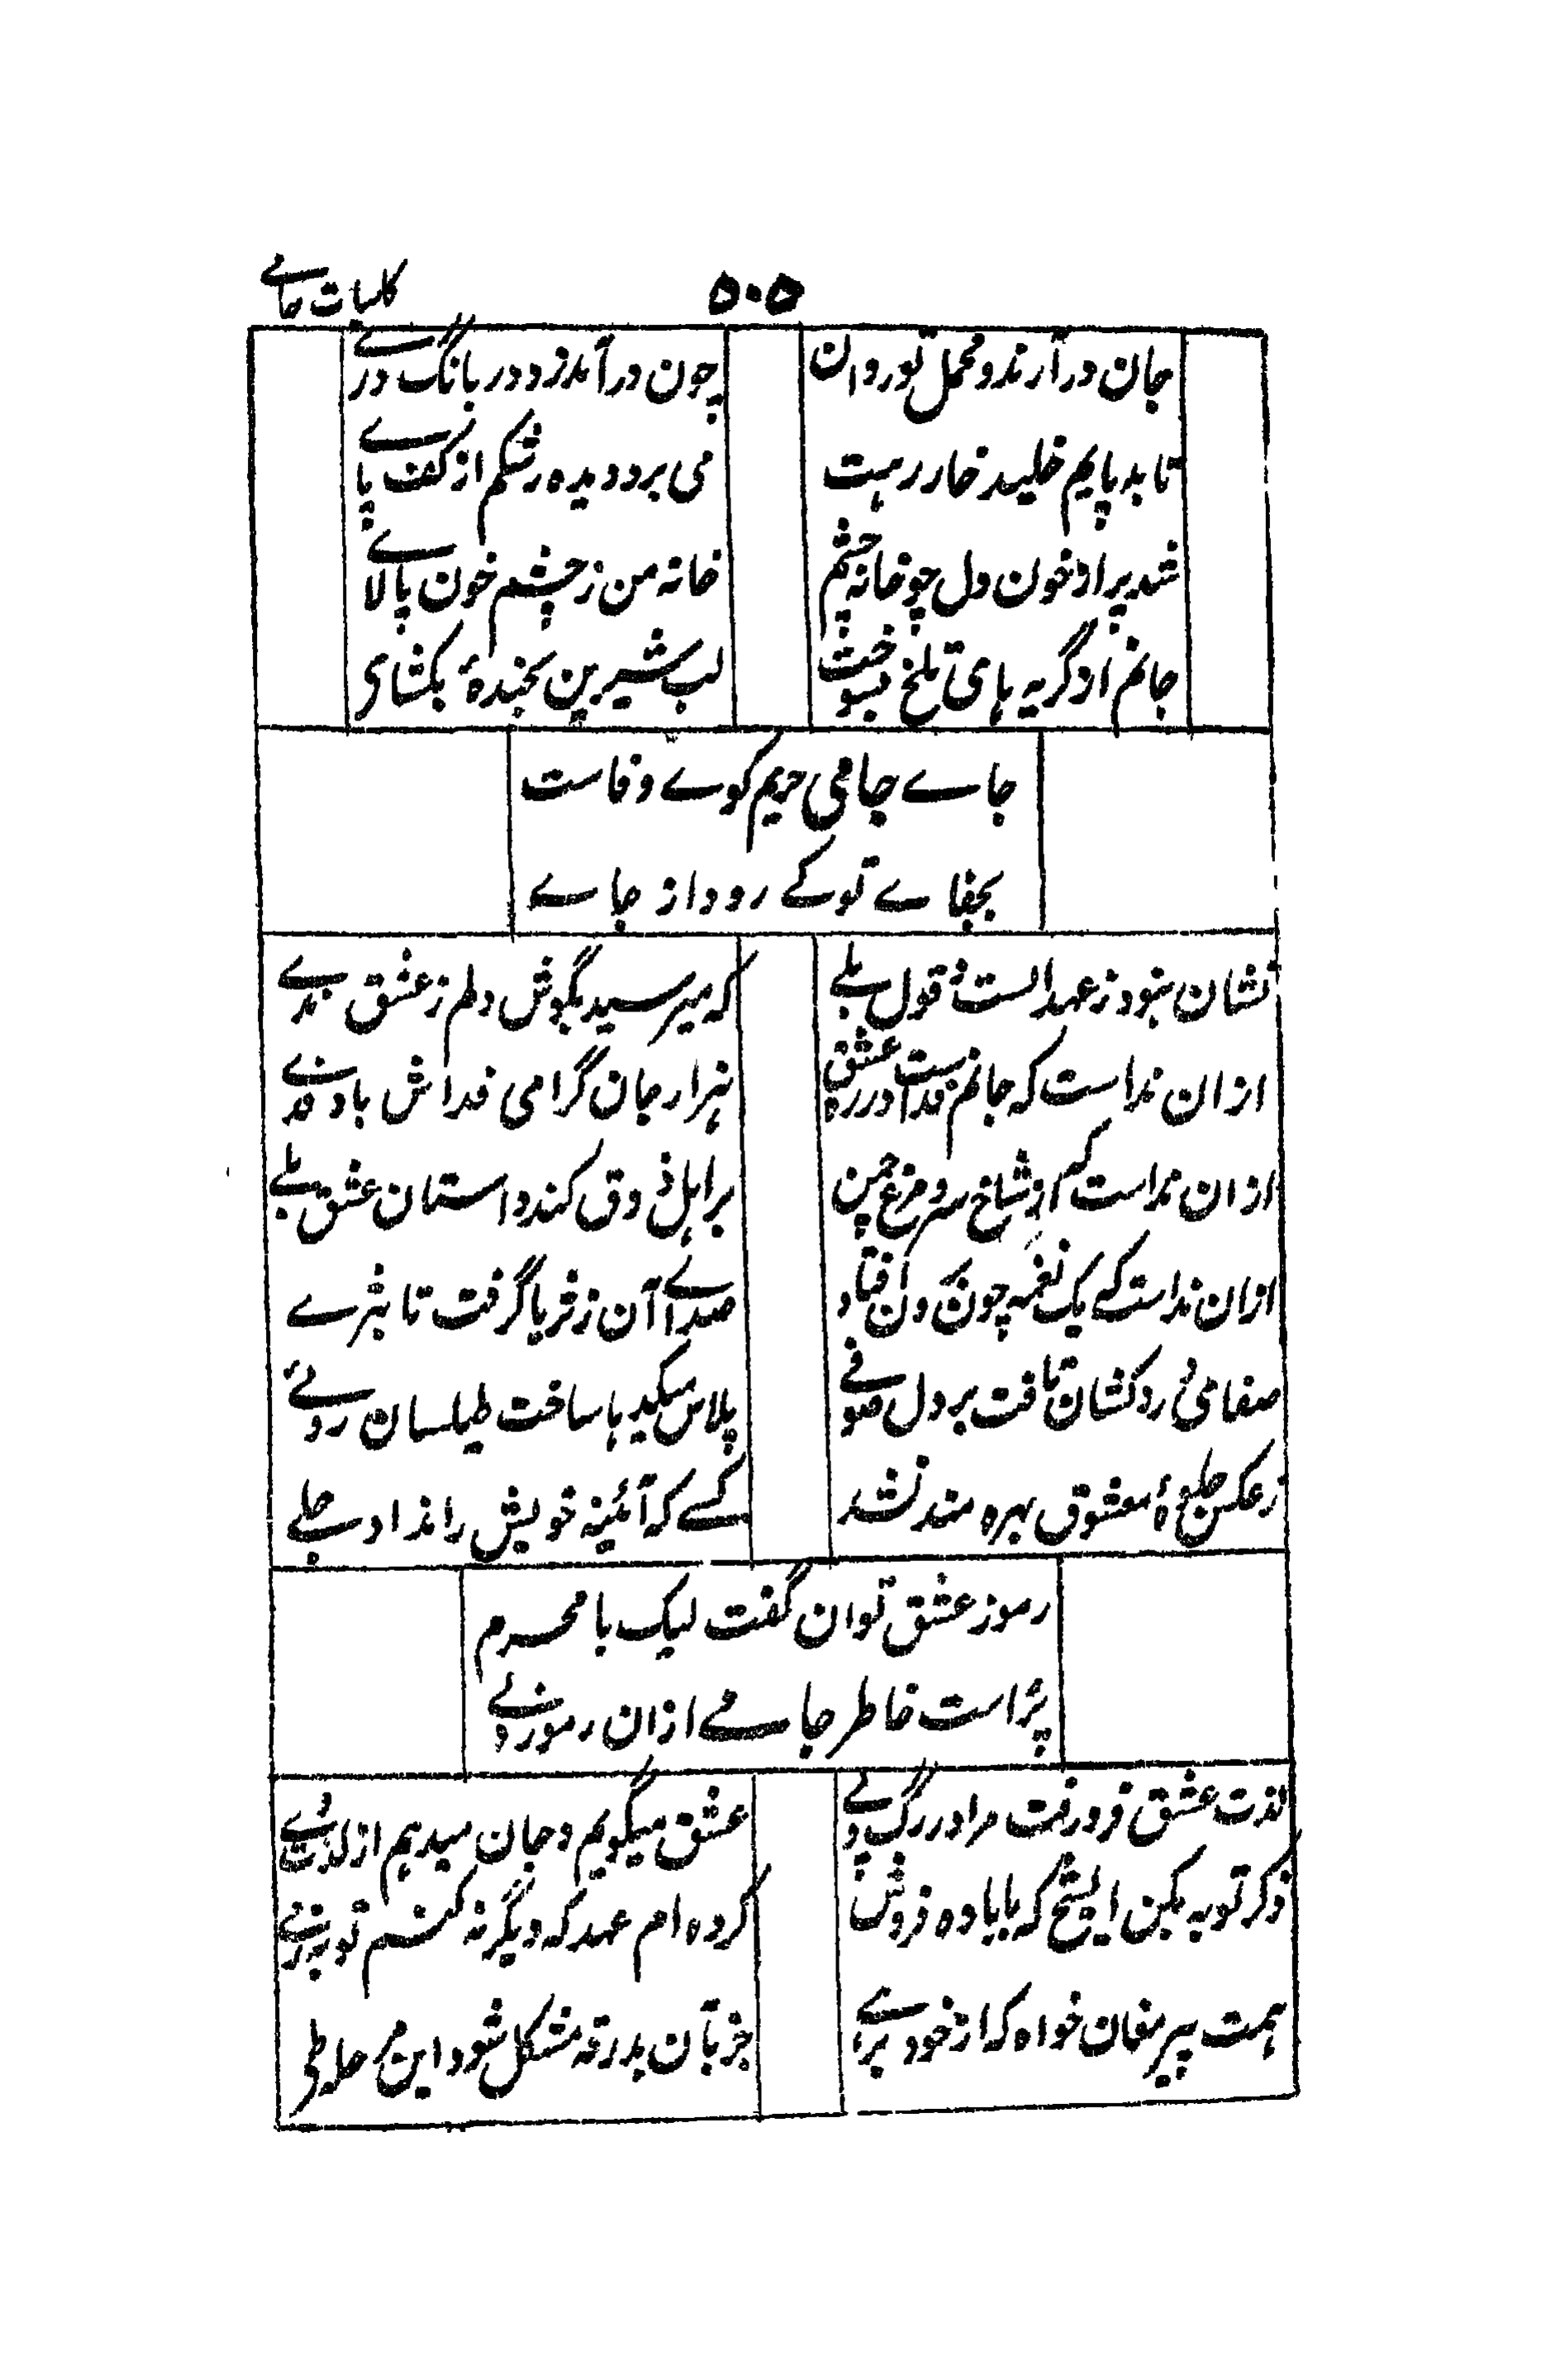 کلیات جامے
۵۰۵
جان در آرند و محمل تو روان
چون در آمد زدور بانگ درے
تا بہ پایم خلید خار رہت
می برد دیدہ رشکم از کف پاے
شد پر از خون دل چو خانہ چشم
خانہ من ز چشم خون پالاے
جانم از گریہ ہای تلخ بسوخت
لب شیرین بخندۂ بکشای
جاے جامی حریم کوے وفاست
بجفاے تو کے رود از جاے
نشان نبود ز عہد الست و قول بلے
کہ میرسید بگوش دلم ز عشق ندے
ازان نداست کہ جانم فداست در رہ عشق
ہزار جان گرامی فداش باد فدے
ازان نداست کہ از شاخ سرو مرغ چمن
بر اہل ذوق کند داستان عشق ملے
ازان نداست کہ یک نغمہ چون برون افتاد
صداے آن ز ثریا گرفت تا بثرے
صفای درد کشان تافت بر دل صوفے
پلاس میکدہا ساخت طیلسان روے
ز عکس جلوۂ معشوق بہرہ مند نشد
کسے کہ آئینہ خویش را نداد جلے
رموز عشق توان گفت لیک با محرم
پرُ است خاطر جامے ازان رموز ولے
لذت عشق فرو رفت مرا در رگ و پے
عشق میگویم و جان میدہم از لذت وے
ذکر توبہ مکن ای شیخ کہ با بادہ فروش
کردہ ام عہد کہ دیگر نہ کنم توبہ ز مے
ہمت پیر مغان خواہ کہ از خود برہے
جز بآن بدرقہ مشکل شود این مرحلہ طی